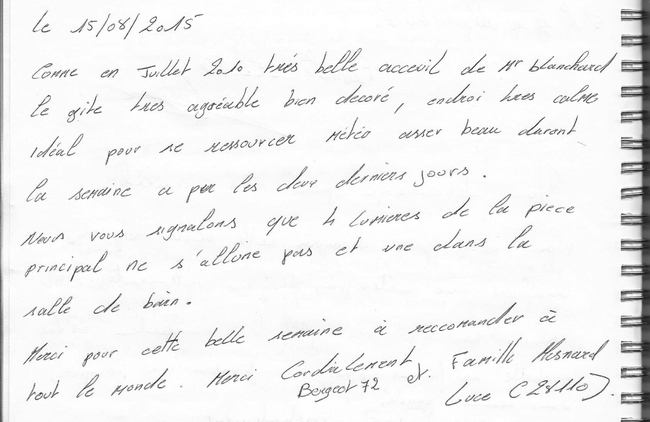 le 15/08/2015
Comme en Juillet 2010 très belle acceuil de Mr blanchard
le gite tres agréable bien decoré, endroi tres calme
idéal pour se ressourcer Météo asser beau durant
la semaine a par les deux derniers jours.
Nous vous signalons que 4 lumieres de la piece
principal ne s'allume pas et une dans la
salle de bain.
Merci pour cette belle semaine à reccomander à
tout le monde. Merci Cordialement Famille Mesnard
72 et Luce (28110).